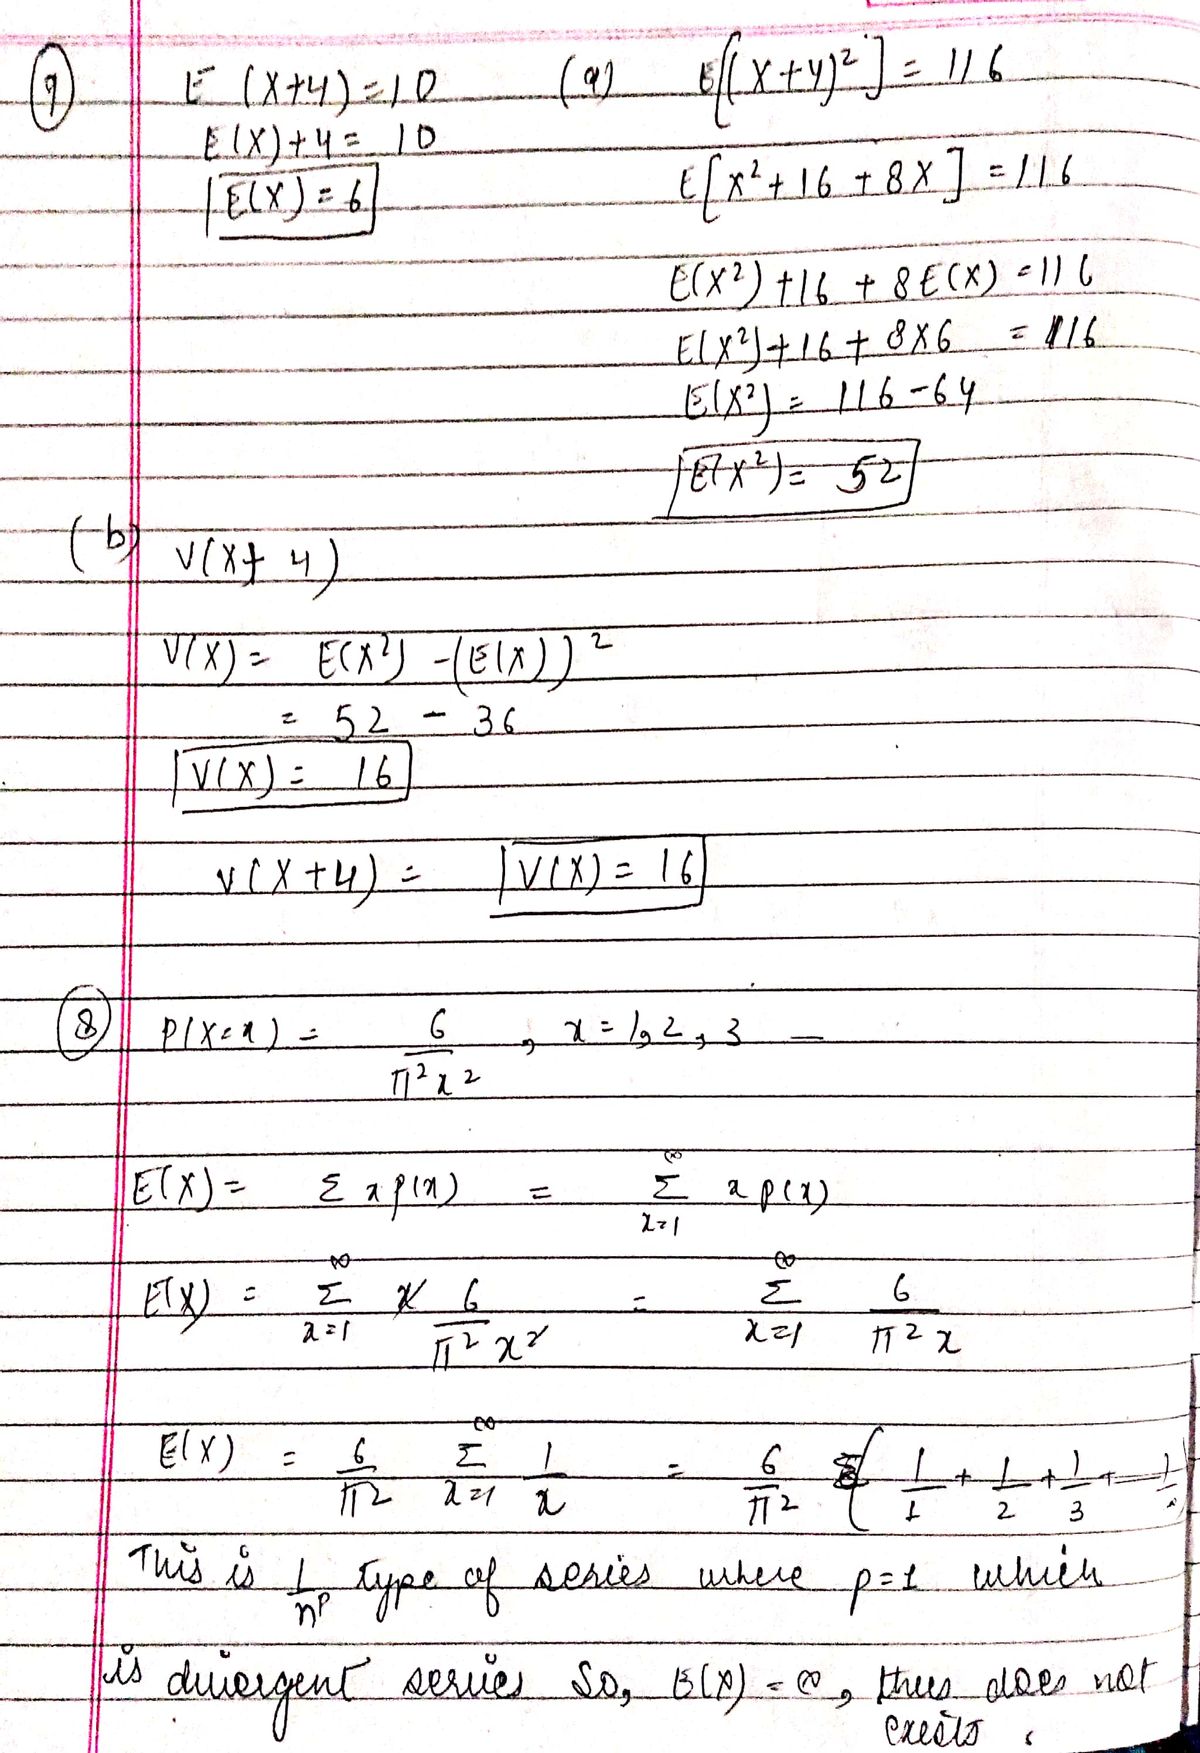 9 E (X+4) = 10 (a) E[(X+4)²] = 116
E(X)+4 = 10
E(X) = 6
E[X² + 16 + 8X] = 116
E(X²) + 16 + 8E(X) = 116
E(X²) + 16 + 8×6 = 116
E(X²) = 116 - 64
E(X²) = 52
(b) V(X+ 4)
V(X) = E(X²) - (E(X))²
= 52 - 36
V(X) = 16
V(X+4) = V(X) = 16
8 P(X=x) = 6/π²x² , x = 1, 2, 3 —
E(X) = Σ x p(x) = Σ_{x=1}^{∞} x p(x)
E(X) = Σ_{x=1}^{∞} x 6/π² x² = Σ_{x=1}^{∞} 6/π² x
E(X) = 6/π² Σ_{x=1}^{∞} 1/x = 6/π² ( 1/1 + 1/2 + 1/3 + —
This is 1/n^p type of series where p=1 which
is divergent series So, E(X) = ∞, thus does not
exists .